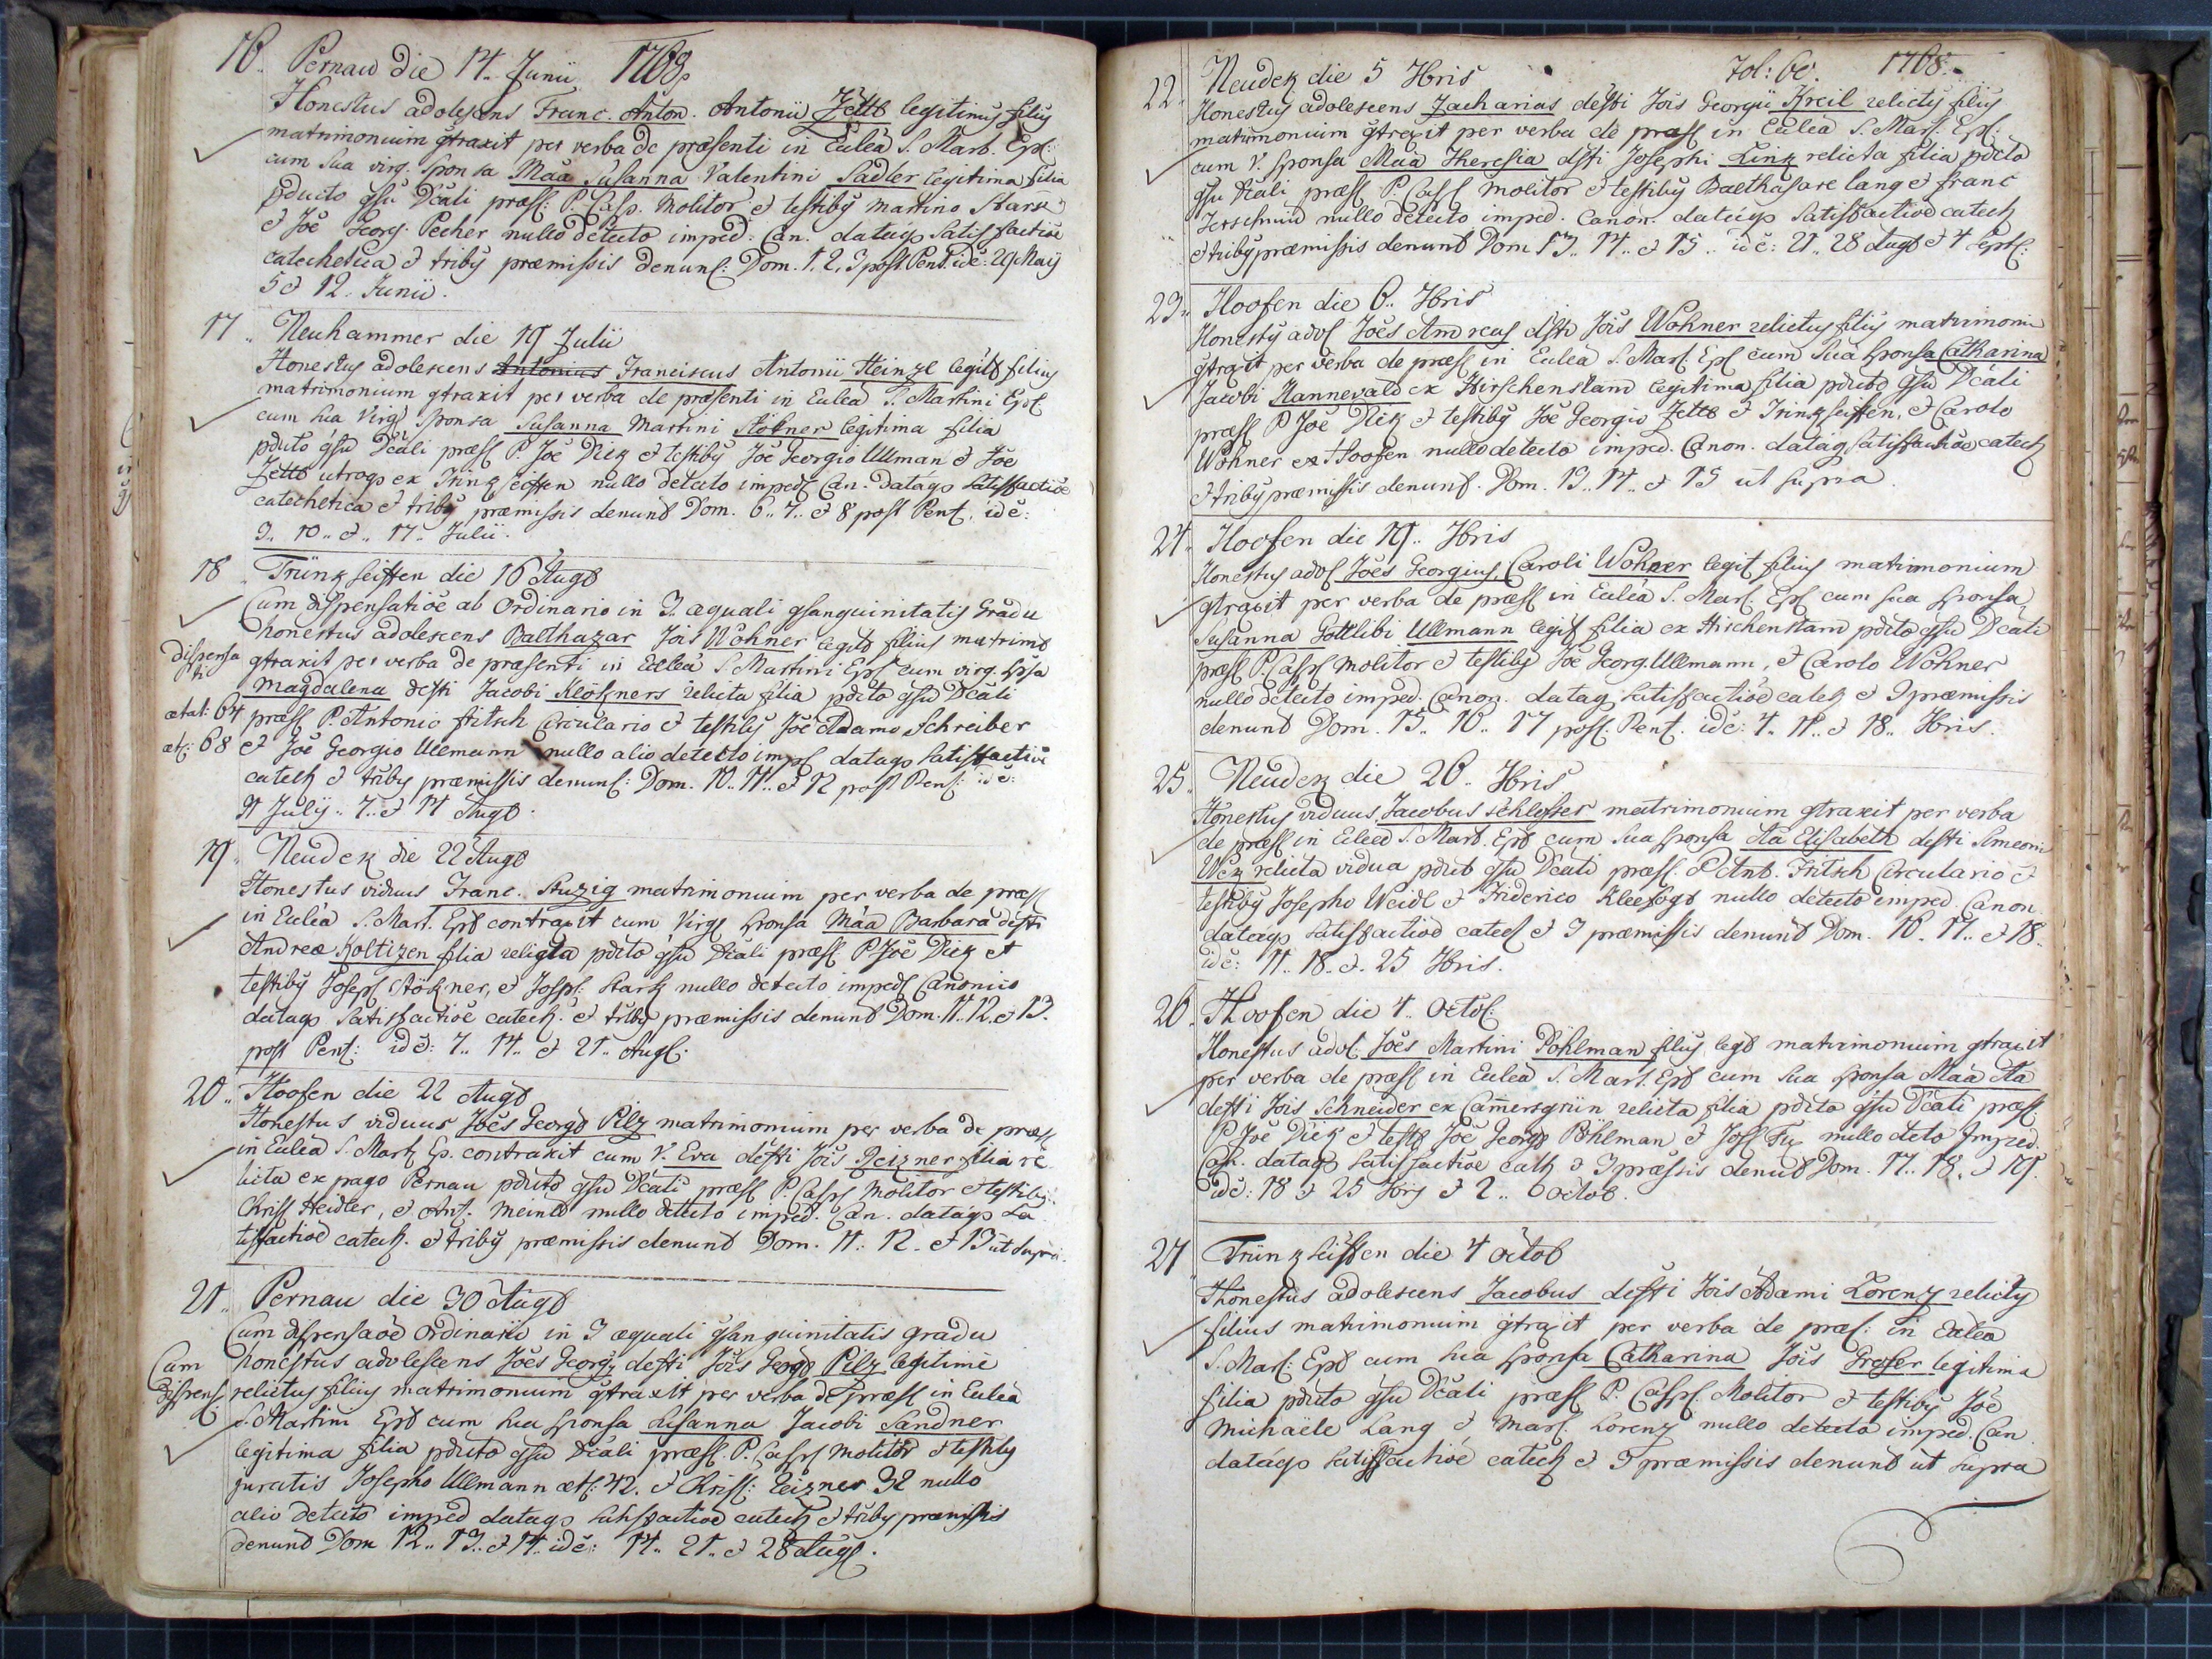 16. Pernau die 14. Junii 1768.
Honestus adolescens Franc. Anton. Antonii Zettl legitimus filius
matrimonium gtraxit per verba de præsenti in Eulea S. Mart. Epi:
cum sua virg. Sponsa Maa Susanna Valentini Sadler legitima filia
pducto gsu Dcali præs: P. Casp. Molitor et testiby Martino Stark
et Joe Georg. Pecher nullo detecto imped: Can. datags Satisfactioe
catechetica et triby præmissis denun: Dom. 1. 2. 3 post Pent. ide: 29 Maij
5 et 12. Junii.
17. Neuhammer die 19 Julii
Honestus adolescens Antonius Franciscus Antonii Heinzl legit filius
matrimonium gtraxit per verba de præsenti in Eulea S. Martini Epi
cum sua Virg Sponsa Susanna Martini Stökner legitima filia
pducto gsu Dcali præs P. Joe Dick et testiby Joe Georgio Ullman et Joe
Zettl utrogs ex Trinkseiffen nullo detecto imped Can. datags satisfactioe
catechetica et triby præmissis denunt Dom. 6.. 7.. et 8 post Pent. ide:
3.. 10.. et.. 17.. Julii.
18 Trünkseiffen die 16 Augt
Cum dispensatioe ab Ordinario in 3. æquali gsanguinitatis Gradu
honestus adolescens Balthazar Jois Wohner legit filius matrimt
dispensati
gtraxit per verba de præsenti in Eulea S. Martini Epi cum virg. spsa
Magdalena desti Jacobi Klökners relicta filia pdcto gsu Dcali
ætat: 64 præs P. Antonio Fritsch Circulario et testiby Joe Adamo Schreiber
æt: 68 et Joe Georgio Ullmann nullo alio detecto imp datags satisfactioe
catech et triby præmissis denun: Dom. 10.. 11.. et 12 post Pent: ide:
31 Julij.. 7.. et 14 Augt.
19. Neudek die 22 Augt
Honestus viduus Franc. Stuzig matrimonium per verba de præs
in Eulea S. Mart. Epi contraxit cum Virg Sponsa Maa Barbara desti
Andreæ Koltizen filia relicta pdcto gsu Dcali præs P. Joe Dick et
testiby Joseph Stökner, et Joseph: Stark nullo detecto imped Canonico
datags satisfactioe catech. et triby præmissis denunt Dom. 11. 12. et 13.
post Pent: ide: 7.. 14.. et 21.. Aug.
20.. Hoofen die 22 Augt
Honestus viduus Joes Georg Pilz matrimonium per verba de præs
in Eulea S. Mart Ep. contraxit cum V. Eva desti Jois Zeizner filia re
licta ex pago Pernau pducto gsu Dcali præs P. Casp Molitor et testiby
Christ Heidler, et Ant. Meinl nullo detecto imped. Can. datags Sa
tisfactioe catech. et triby præmissis denunt Dom. 11.. 12. et 13 ut supra.
21.. Pernau die 30 Augt
Cum dispensaoe Ordinarii in 3 æquali gsanguinitatis gradu
Cum honestus adolescens Joes Georg desti Jois Georg Pilz legitime
dispens relictus filius matrimonium gtraxit per verba de præs in Eulea
S. Martini Epi cum sua sponsa Susanna Jacobi Sandner
legitima filia pducto gsu Dcali præs. P. Casp Molitor et testiby
juratis Josepho Ullmann æt: 42. et Christ: Zeizner 32 nullo
alio detecto imped datags satisfactioe catech et triby præmissis
denunt Dom 12.. 13.. et 14.. ide: 14.. 21.. et 28 Aug.
Fol: 60. 1768.
22. Neudek die 5 7bris
Honestus adolescens Zacharias desti Jois Georgii Kreil relictus filius
matrimonium gtraxit per verba de præs in Eulea S. Mart. Epi:
cum V. Sponsa Maa Theresia dsti Josephi Link relicta filia pdcto
gsu Dcali præs P. Casp Molitor et testiby Balthasare lang et franc
Jerschmid nullo detecto imped. Canon. datags satisfactioe catech
et triby præmissis denunt Dom 13.. 14.. et 15.. ide: 21.. 28 Augt et 4 Sept:
23. Hoofen die 6.. 7bris
Honestus adol Joes Andreas dsti Jois Wohner relictus filius matrimoniu
gtraxit per verba de præs in Eulea S. Mart. Epi cum sua sponsa Catharina
Jacobi Hannevald ex Hirschenstand legitima filia pducto gsu Dcali
præs P Joe Dick et testiby Joe Georgio Zettl et Trinkseiffen, et Carolo
Wohner ex Hoofen nullo detecto imped. Canon. datags satisfactioe catech
et triby præmissis denunt. Dom. 13.. 14.. et 15 ut supra.
24. Hoofen die 19.. 7bris
Honestus adol Joes Georgius, Caroli Wohner legit filius matrimonium
gtraxit per verba de præs in Eulea S. Mart Epi cum sua sponsa
Susanna Gottlibi Ullmann legit filia ex Hirschenstand pdcto gsu Dcali
præs P. Casp Molitor et testiby Joe Georg. Ullmann, et Carolo Wohner
nullo detecto imped. Canon. datags satisfactioe catech et 3 præmissis
denunt Dom. 15.. 16.. 17 post. Pent. ide: 4.. 11.. et 18.. 7bris.
25. Neudek die 26.. 7bris
Honestus viduus Jacobus Schlosser matrimonium gtraxit per verba
de præs in Eulea S. Mart. Epi cum sua sponsa Aa Elisabeth desti Simeonis
Wek relicta vidua pduct gsu Dcali præs. P Ant. Fritsch Circulario et
testiby Josepho Weidl et Friderico Kleefogt nullo detecto imped. Canon.
datags satisfactioe catech et 3 præmissis denunt Dom. 16. 17.. et 18..
ide: 11.. 18. et. 25 7bris.
26. Hoofen die 4.. Octob:
Honestus adol. Joes Martini Pöhlman filius legt matrimonium gtraxit
per verba de præs in Eulea S. Mart. Epi cum sua sponsa Maa Aa
desti Jois Schneider ex Camersgrün relicta filia pdcto gsu Dcali præs.
P Joe Dick et test Joe Georg Pöhlman et Jos Fix nullo deto Imped.
Can. datags satisfactioe cath et 3 præssis denunt Dom. 17.. 18. et 19.
ide: 18 et 25 7bris et 2.. Octob.
27 Trünkseiffen die 4 Octob
Honestus adolescens Jacobus desti Jois Adami Lorenz relictus
filius matrimonium gtraxit per verba de præs: in Eulea
S. Mart: Epi cum sua sponsa Catharina Jois Groser legitima
filia pducto gsu Dcali præs P. Casp. Molitor et testiby Joe
Michaele Lang et Mart. Lorenz nullo detecto imped. Can
datags satisfactioe catech et 3 præmissis denunt ut supra